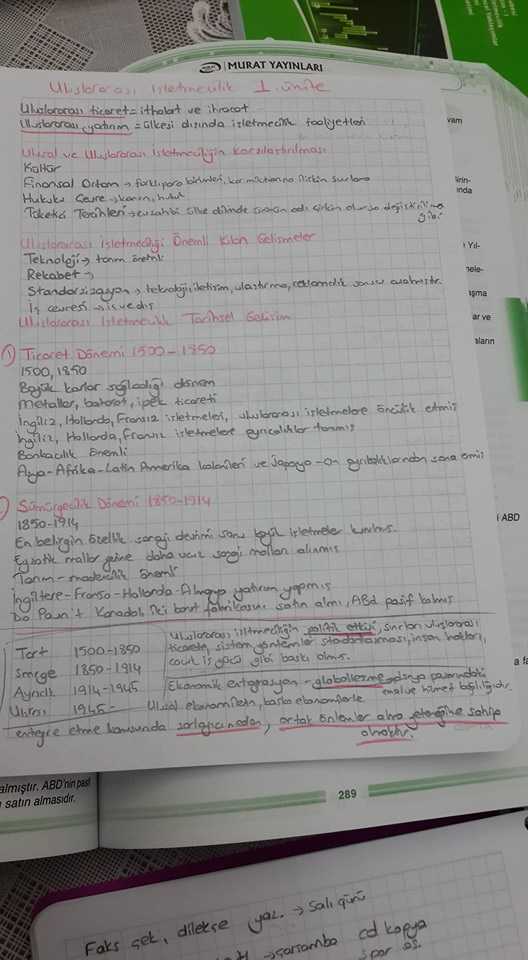 MURAT YAYINLARI
Uluslararası İşletmecilik 1. ünite
Uluslararası ticaret = ithalat ve ihracat
Uluslararası yatırım = ülkesi dışında işletmecilik faaliyetleri
Ulusal ve Uluslararası İşletmeciliğin Karşılaştırılması
Kültür
Finansal Ortam → farklı para birimleri, kar
Hukuki Çevre → kanun, hukuk
Tüketici Tercihleri → ev sahibi ülke dilinde
gibi
Uluslararası İşletmeciliği Önemli Kılan Gelişmeler
Teknoloji → tanım önemli
Rekabet →
Standardizasyon → teknoloji, iletişim, ulaştırma, reklamcılık sonucu
İş çevresi → iç ve dış
Uluslararası İşletmecilik Tarihsel Gelişim
1 Ticaret Dönemi 1500-1850
1500, 1850
Büyük karlar sağladığı dönem
Metaller, baharat, ipek ticareti
İngiliz, Hollanda, Fransız işletmeleri, uluslararası işletmelere öncülük etmiş
İngiliz, Hollanda, Fransız işletmelere ayrıcalıklar tanımış
Bankacılık önemli
Asya-Afrika-Latin Amerika kolonileri ve
Sömürgecilik Dönemi 1850-1914
1850-1914
En belirgin özellik sanayi devrimi sonu büyük işletmeler kurulmuş.
Egzotik mallar yerine daha ucuz sanayi malları alınmış
Tarım-madencilik önemli
İngiltere-Fransa-Hollanda-Almanya yatırım yapmış
Do Paun't Kanadalı iki barut fabrikasını satın almış, ABD pasif kalmış
Ticrt 1500-1850
Smrge 1850-1914
Ayrıclk 1914-1945
Ulsrsı 1945-
Uluslararası işletmeciliğin politik etkisi, sınırları uluslararası
ticarete, sistem yöntemler standartlaşması, insan hakları,
çocuk iş gücü gibi baskı olmuş.
Ekonomik entegrasyon - globalleşme dünya pazarındaki
Ulusal ekonomilerin, başka ekonomilerle
mal ve hizmet bağlılığıdır.
entegre etme konusunda ortak önlemler alma yeteneğine sahip
olmaktır.
289
almıştır. ABD'nin pasif
satın almasıdır.
vam
Yıl-
nele-
aşma
ar ve
aların
ABD
Faks çek, dilekçe yaz. → Salı günü
→ çarşamba cd kopya